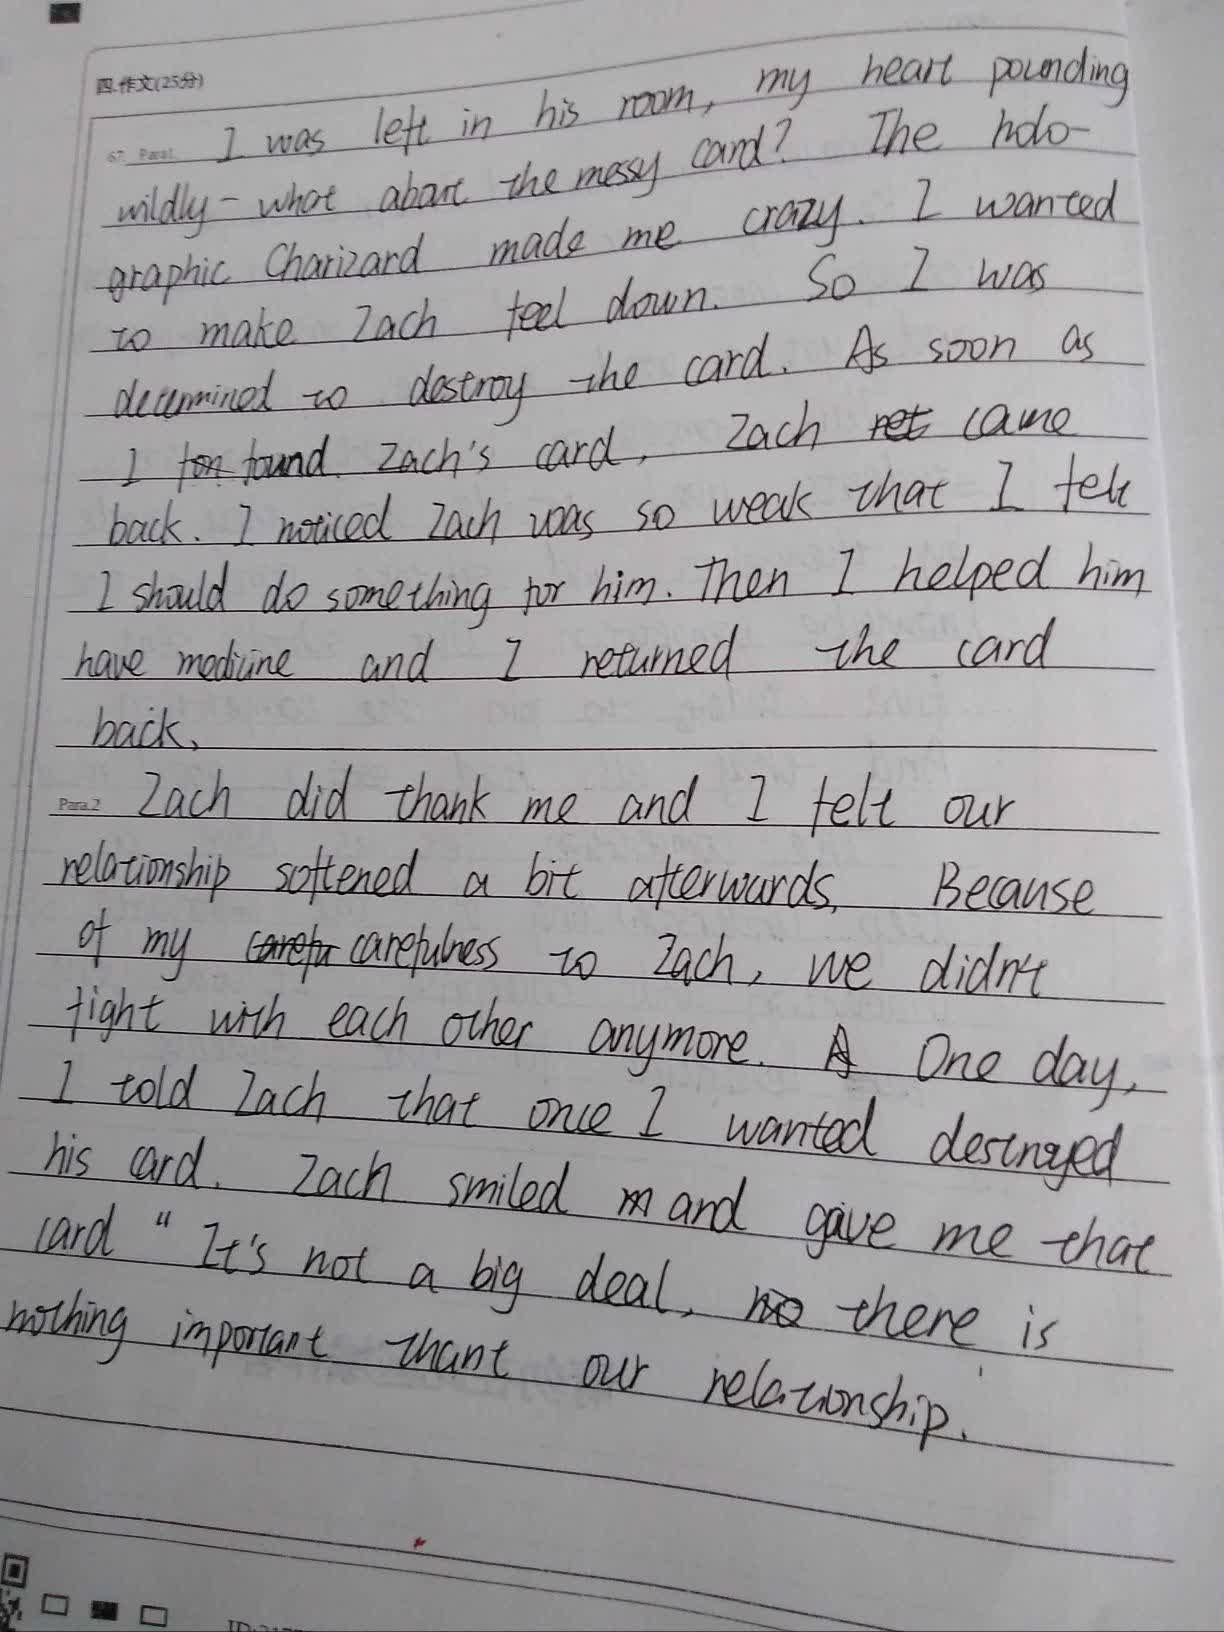 四.作文(25分)
67. Para1. I was left in his room, my heart pounding
wildly - what about the messy card? The holo-
graphic Charizard made me crazy. I wanted
to make Zach feel down. So I was
determined to destroy the card. As soon as
I fon found Zach's card, Zach ret came
back. I noticed Zach was so weak that I felt
I should do something for him. Then I helped him
have medicine and I returned the card
back.
Para.2 Zach did thank me and I felt our
relationship softened a bit afterwards. Because
of my carefu carefulness to Zach, we didn't
fight with each other anymore. A One day,
I told Zach that once I wanted destroyed
his card. Zach smiled m and gave me that
card " It's not a big deal, no there is
nothing important thant our relationship.